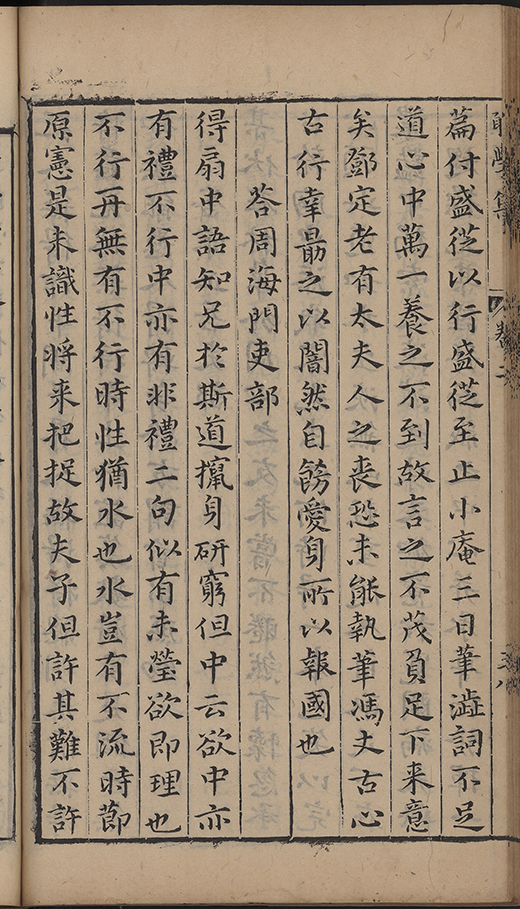 學集 卷二
篇付盛從以行盛從至止小庵三日筆澁詞不足
道心中萬一養之不到故言之不茂負足下来意
矣鄧定老有太夫人之喪恐未能執筆馮丈古心
古行幸勗之以闇然自餙愛身所以報國也
荅周海門吏部
得扇中語知兄於斯道攛身研窮但中云欲中亦
有禮不行中亦有非禮二句似有未瑩欲即理也
不行再無有不行時性猶水也水豈有不流時節
原憲是未識性将来把捉故夫子但許其難不許